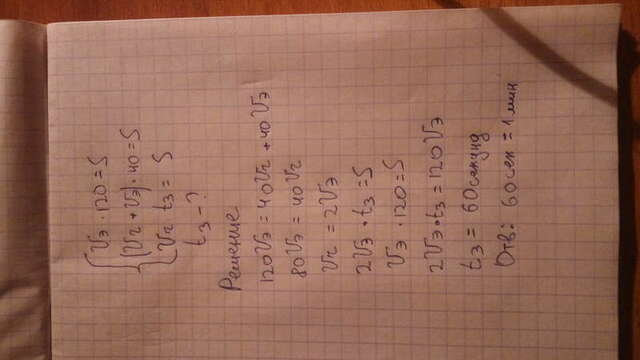 Vэ · 120 = S
(Vч + Vэ) · 40 = S
Vч t3 = S
t3 - ?
Решение
120Vэ = 40Vч + 40Vэ
80Vэ = 40Vч
Vч = 2Vэ
2Vэ · t3 = S
Vэ · 120 = S
2Vэ · t3 = 120Vэ
t3 = 60 секунд
Отв: 60 сек = 1 мин